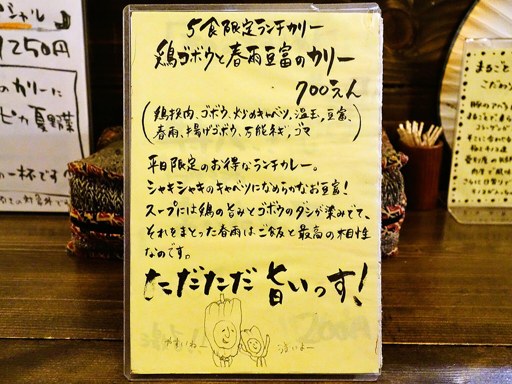 5食限定ランチカリー
鶏ゴボウと春雨豆富のカリー
700えん
(鶏挽肉、ゴボウ、炒めキャベツ、温玉、豆富、
春雨、揚げゴボウ、万能ネギ、ゴマ)
平日限定のお得なランチカレー。
シャキシャキのキャベツになめらかなお豆富!
スープには鶏の旨みとゴボウのダシが染みでて、
それをまとった春雨はご飯と最高の相性
なのです。
ただただ旨いっす!
やすいね
うまいよー
1250円
のカリーに
ピカ夏野菜
一杯です
まるごと
これがい